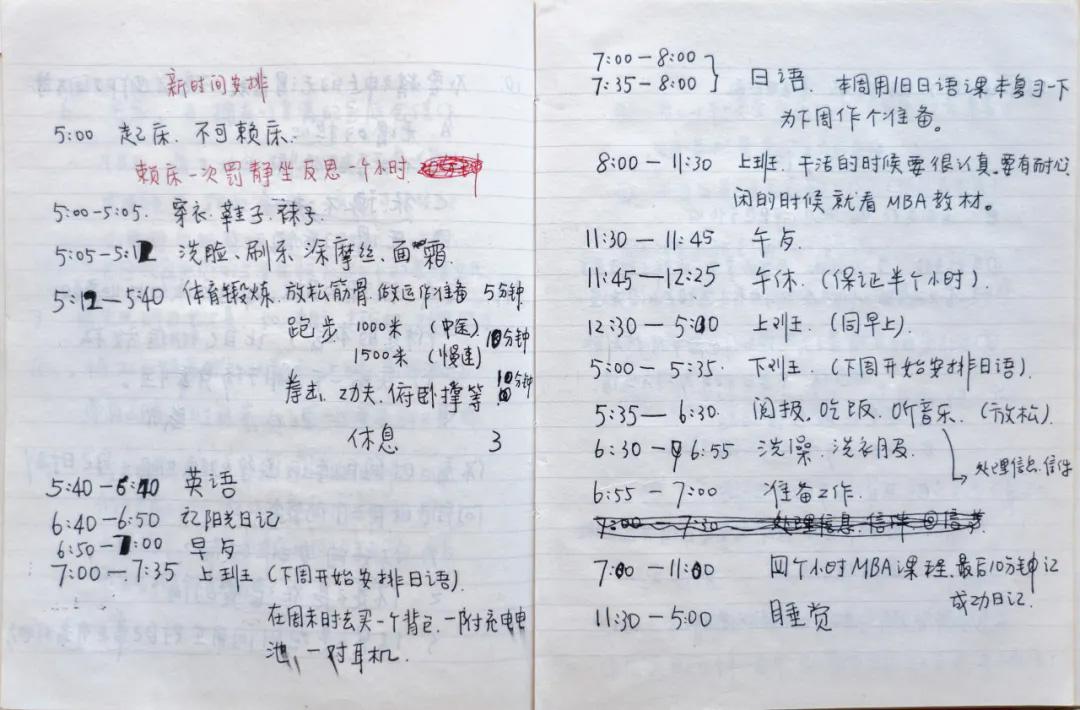 新时间安排
5:00 起床、不可赖床、
赖床一次罚静坐反思一个小时
5:00-5:05. 穿衣、鞋子、袜子.
5:05-5:12 洗脸、刷牙、涂摩丝、面霜.
5:12-5:40 体育锻炼、放松筋骨、做运作准备 5分钟
跑步 1000米 (中医)
1500米 (慢速) 10分钟
拳击、功夫、俯卧撑等. 10分钟
休息 3
5:40-6:40 英语
6:40-6:50 记阳光日记
6:50-7:00 早点
7:00-7:35 上班 (下周开始安排日语).
在周末时去买一个背包、一附充电电
池、一对耳机.
7:00-8:00
7:35-8:00 日语. 本周用旧日语课本复习一下
为下周作个准备。
8:00-11:30 上班、干活的时候要很认真、要有耐心
闲的时候就看MBA教材。
11:30-11:45 午点
11:45-12:25 午休. (保证半个小时).
12:30-5:00 上班. (同早上).
5:00-5:35. 下班. (下周开始安排日语).
5:35-6:30. 阅报、吃饭、听音乐. (放松).
6:30-6:55 洗澡、洗衣服.
处理信息、信件
6:55-7:00 准备工作.
7:00-7:30 处理信息、信件
7:00-11:00 四个小时MBA课程、最后10分钟记
成功日记.
11:30-5:00 睡觉